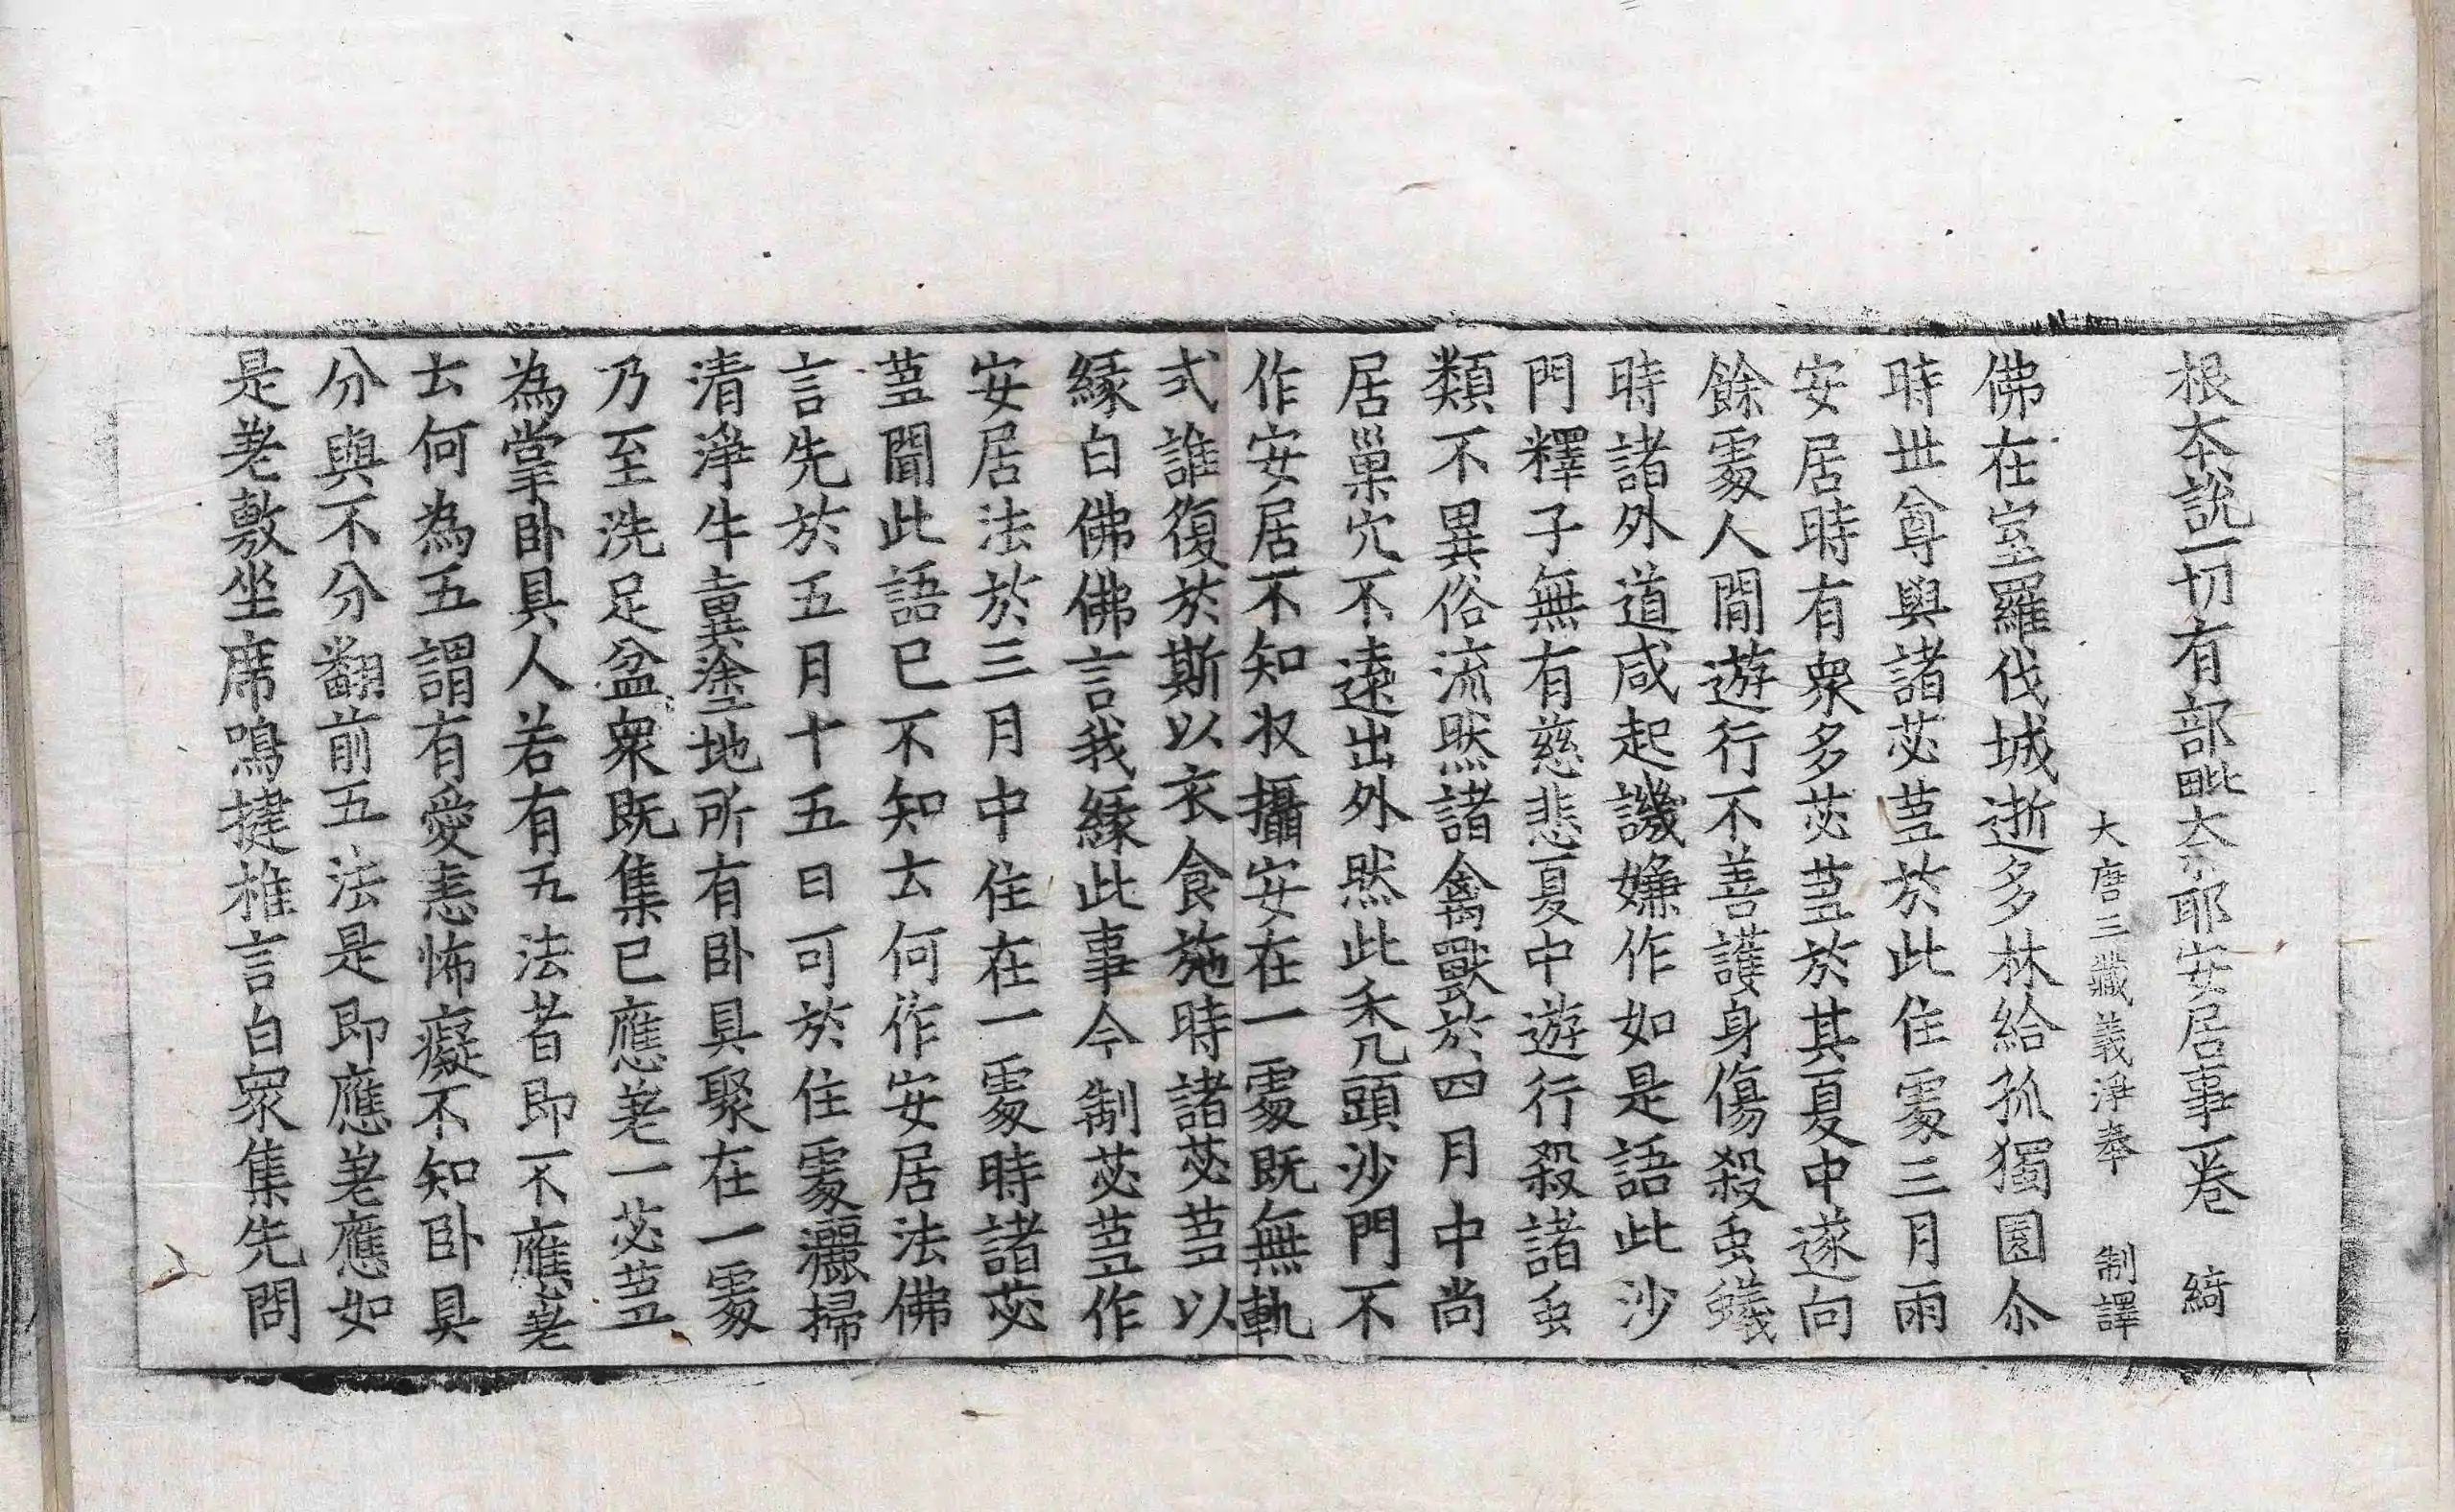 根本說一切有部毗柰耶安居事一卷 綺
大唐三藏義淨奉 制譯
佛在室羅伐城逝多林給孤獨園尒
時世尊與諸苾蒭於此住處三月雨
安居時有衆多苾蒭於其夏中遂向
餘處人間遊行不善護身傷殺虫蟻
時諸外道咸起譏嫌作如是語此沙
門釋子無有慈悲夏中遊行殺諸虫
類不異俗流然諸禽獸於四月中尚
居巢穴不遠出外然此禿頭沙門不
作安居不知收攝安在一處既無軌
式誰復於斯以衣食施時諸苾蒭以
緣白佛佛言我緣此事今制苾蒭作
安居法於三月中住在一處時諸苾
蒭聞此語已不知云何作安居法佛
言先於五月十五日可於住處灑掃
清淨牛糞塗地所有卧具聚在一處
乃至洗足盆衆既集已應差一苾蒭
為掌卧具人若有五法者即不應差
云何為五謂有愛恚怖癡不知卧具
分與不分翻前五法是即應差應如
是差敷坐席鳴揵椎言白衆集先問